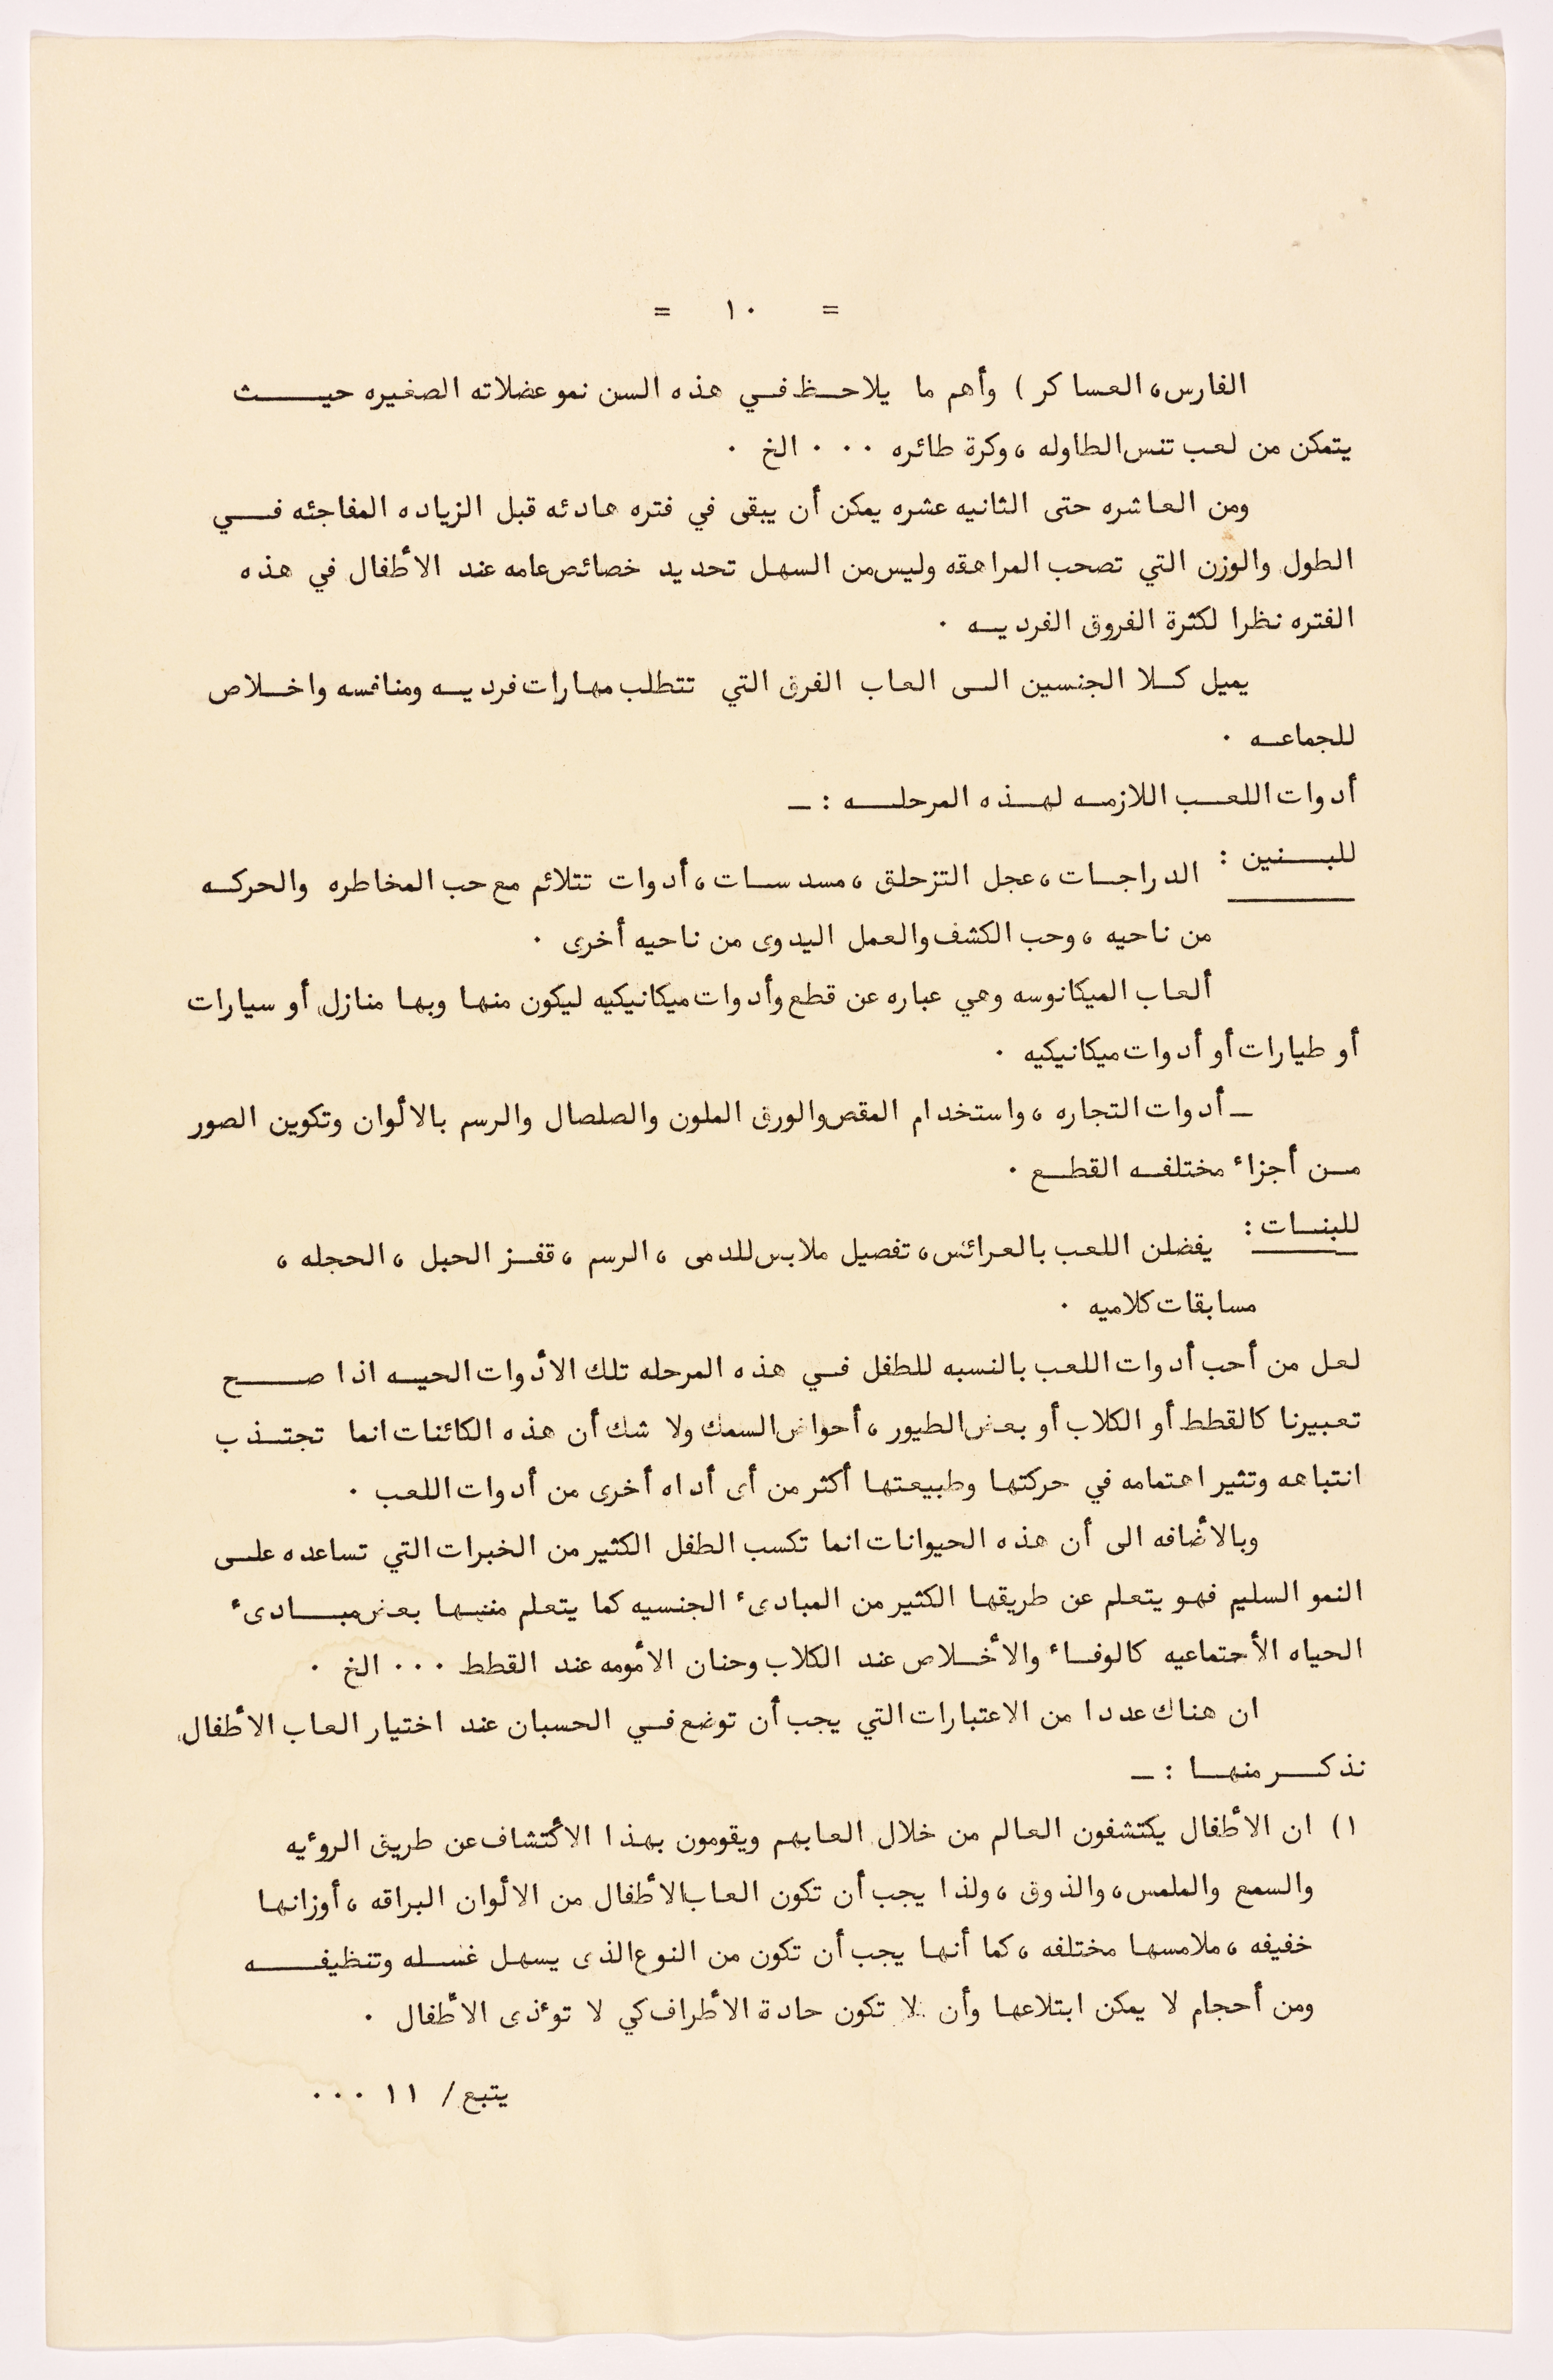 = ١٠ =
الفارس، العساكر ) وأهم ما يلاحظ في هذه السن نمو عضلاته الصغيره حيث
يتمكن من لعب تنس الطاوله ، وكرة طائره ٠٠٠ الخ ٠
ومن العاشره حتى الثانيه عشره يمكن أن يبقى في فتره هادئه قبل الزياده المفاجئه في
الطول والوزن التي تصحب المراهقه وليس من السهل تحديد خصائص عامه عند الأطفال في هذه
الفتره نظرا لكثرة الفروق الفرديه ٠
يميل كلا الجنسين الى العاب الفرق التي تتطلب مهارات فرديه ومنافسه واخلاص
للجماعه ٠
أدوات اللعب اللازمه لهذه المرحله : ــ
للبنين : الدراجات ، عجل التزحلق ، مسدسات ، أدوات تتلائم مع حب المخاطره والحركه
من ناحيه ، وحب الكشف والعمل اليدوى من ناحيه أخرى ٠
ألعاب الميكانوسه وهي عباره عن قطع وأدوات ميكانيكيه ليكون منها وبها منازل أو سيارات
أو طيارات أو أدوات ميكانيكيه ٠
ــ أدوات التجاره ، واستخدام المقص والورق الملون والصلصال والرسم بالألوان وتكوين الصور
من أجزاء مختلفه القطع ٠
للبنات : يفضلن اللعب بالعرائس ، تفصيل ملابس للدمى ، الرسم ، قفز الحبل ، الحجله ،
مسابقات كلاميه ٠
لعل من أحب أدوات اللعب بالنسبه للطفل في هذه المرحله تلك الأدوات الحيه اذا صح
تعبيرنا كالقطط أو الكلاب أو بعض الطيور ، أحواض السمك ولا شك أن هذه الكائنات انما تجتذب
انتباهه وتثير اهتمامه في حركتها وطبيعتها أكثر من أى أداه أخرى من أدوات اللعب ٠
وبالأضافه الى أن هذه الحيوانات انما تكسب الطفل الكثير من الخبرات التي تساعده على
النمو السليم فهو يتعلم عن طريقها الكثير من المبادىء الجنسيه كما يتعلم منها بعض مبادىء
الحياه الأجتماعيه كالوفاء والأخلاص عند الكلاب وحنان الأمومه عند القطط ٠٠٠ الخ ٠
ان هناك عددا من الاعتبارات التي يجب أن توضع في الحسبان عند اختيار العاب الأطفال
نذكر منها : ــ
١) ان الأطفال يكتشفون العالم من خلال العابهم ويقومون بهذا الأكتشاف عن طريق الروءيه
والسمع والملمس، والذوق ، ولذا يجب أن تكون العاب الأطفال من الألوان البراقه ، أوزانها
خفيفه ، ملامسها مختلفه ، كما أنها يجب أن تكون من النوع الذى يسهل غسله وتنظيفه
ومن أحجام لا يمكن ابتلاعها وأن لا تكون حادة الأطراف كي لا توءذى الأطفال ٠
يتبع / ١١ ٠٠٠